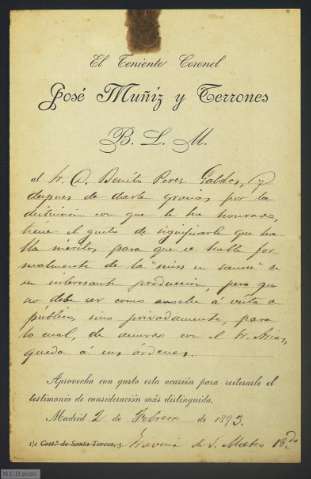 El Teniente Coronel
José Muñiz y Terrones
B. L. M.
al Sr. D. Benito Perez Galdos, y
despues de darle gracias por la
distincion con que le ha honrado,
tiene el gusto de significarle que ha-
lla méritos para que se hable for
malmente de la "mise en scene" de
su interesante produccion, pero que
no debe ser como anoche á vista de
público, sino privadamente, para
lo cual, de acuerdo con el Sr. Arias,
queda á sus órdenes.
Aprovecha con gusto esta ocasión para reiterarle el
testimonio de consideración más distinguida.
Madrid 2 de Febrero de 1893.
de Santa Teresa, Travesia de S. Mateo 18